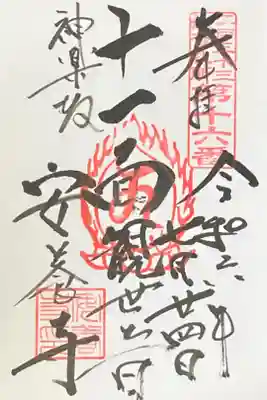 江戸三十三第十六番
奉拝
令和 年
月廿四日
十一面観世音
神楽坂
安養寺